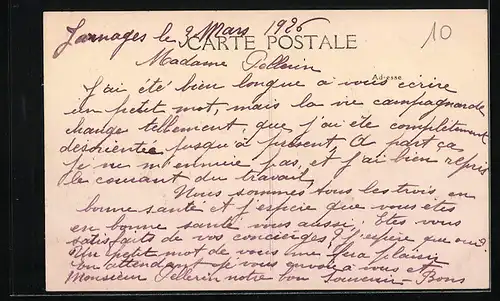 Jarnages le 3 Mars 1926
10
CARTE POSTALE
Madame Pellerin
Adresse
J'ai été bien longue a vous écrire
un petit mot, mais la vie campagnarde
change tellement, que j'ai été complètement
désorientée jusqu'à présent, A part ça
je ne m'ennuie pas, et j'ai bien repris
le courant du travail
Nous sommes tous les trois en
bonne santé et j'espère que vous êtes
en bonne santé vous aussi; Etes vous
satisfaits de vos concierges? j'espère que oui?
Un petit mot de vous me fera plaisir
En attendant je vous envoie à vous et
Monsieur Pellerin notre bon Souvenir Bons